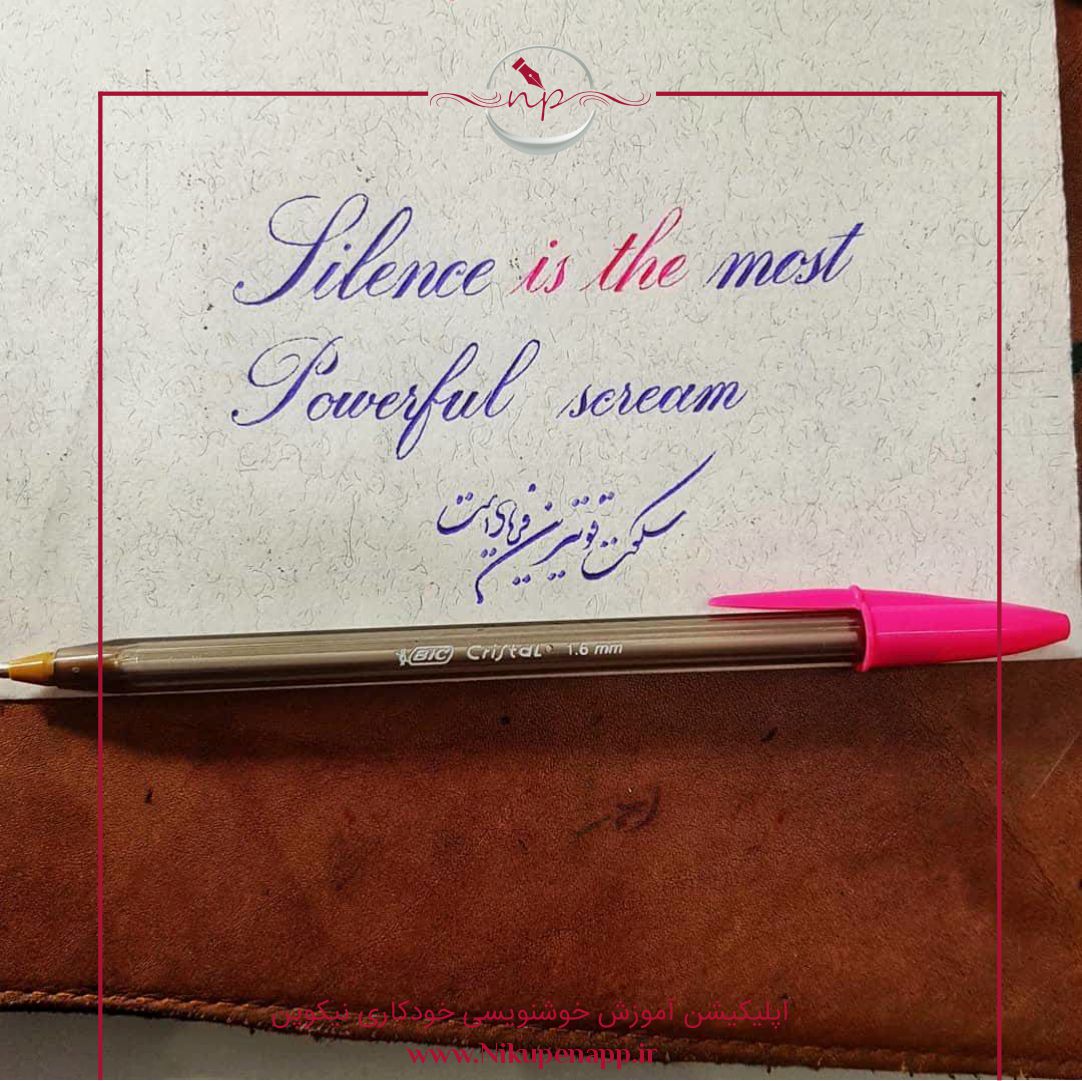 np
Silence is the most
Powerful scream
سکوت قوی‌ترین فریاد است
BIC Cristal® 1.6 mm
اپلیکیشن آموزش خوشنویسی خودکاری نیکوپن
www.Nikupenapp.ir